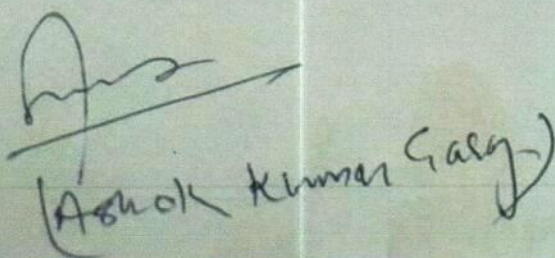 (Ashok Kumar Garg)